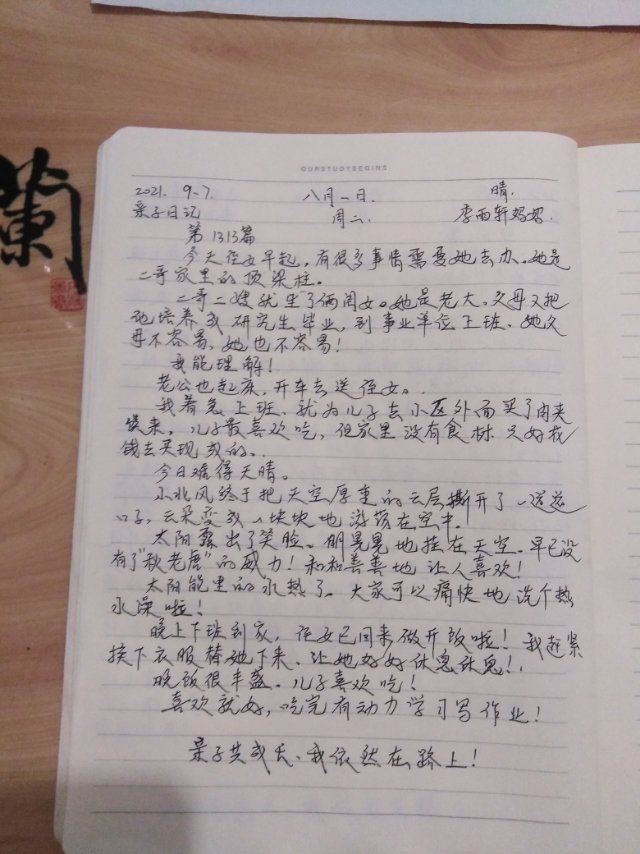 蘭
OURSTUDYBEGINS
2021. 9.7. 八月一日. 晴.
亲子日记 周二. 李雨轩妈妈.
第1313篇
今天侄女早起,有很多事情需要她去办。她是
二哥家里的顶梁柱。
二哥二嫂就生了俩闺女。她是老大。父母又把
她培养成研究生毕业,到事业单位上班、她父
母不容易,她也不容易!
我能理解!
老公也起床,开车去送侄女。
我着急上班、就为儿子去小区外面买了肉夹
馍来,儿子最喜欢吃,但家里没有食材 只好花
钱去买现成的。
今日难得天晴。
小北风终于把天空厚重的云层撕开了一道道
口子,云朵变成一块块地 在空中.
太阳露出了笑脸。明晃晃地挂在天空。早已没
有了"秋老虎"的威力!和和善善地让人喜欢!
太阳能里的水热了。大家可以痛快地洗个热
水澡啦!
晚上下班到家,侄女已回来做开饭啦!我赶紧
换下衣服替她下来、让她好好休息休息!
晚饭很丰盛、儿子喜欢吃!
喜欢就好,吃完有动力学习写作业!
亲子共成长、我依然在路上!